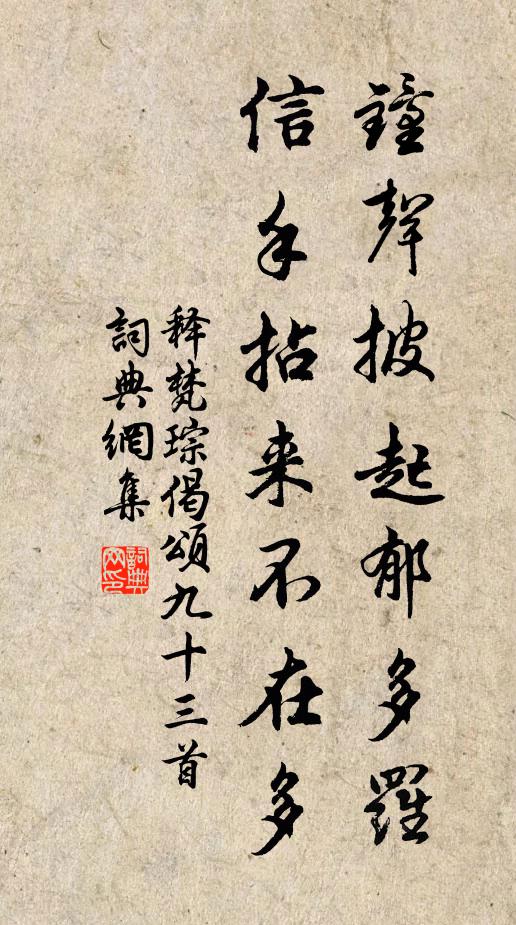 鐘聲披起郁多羅
信手拈来不在多
释梵琮偈頌九十三首
詞典網集
詞典网印